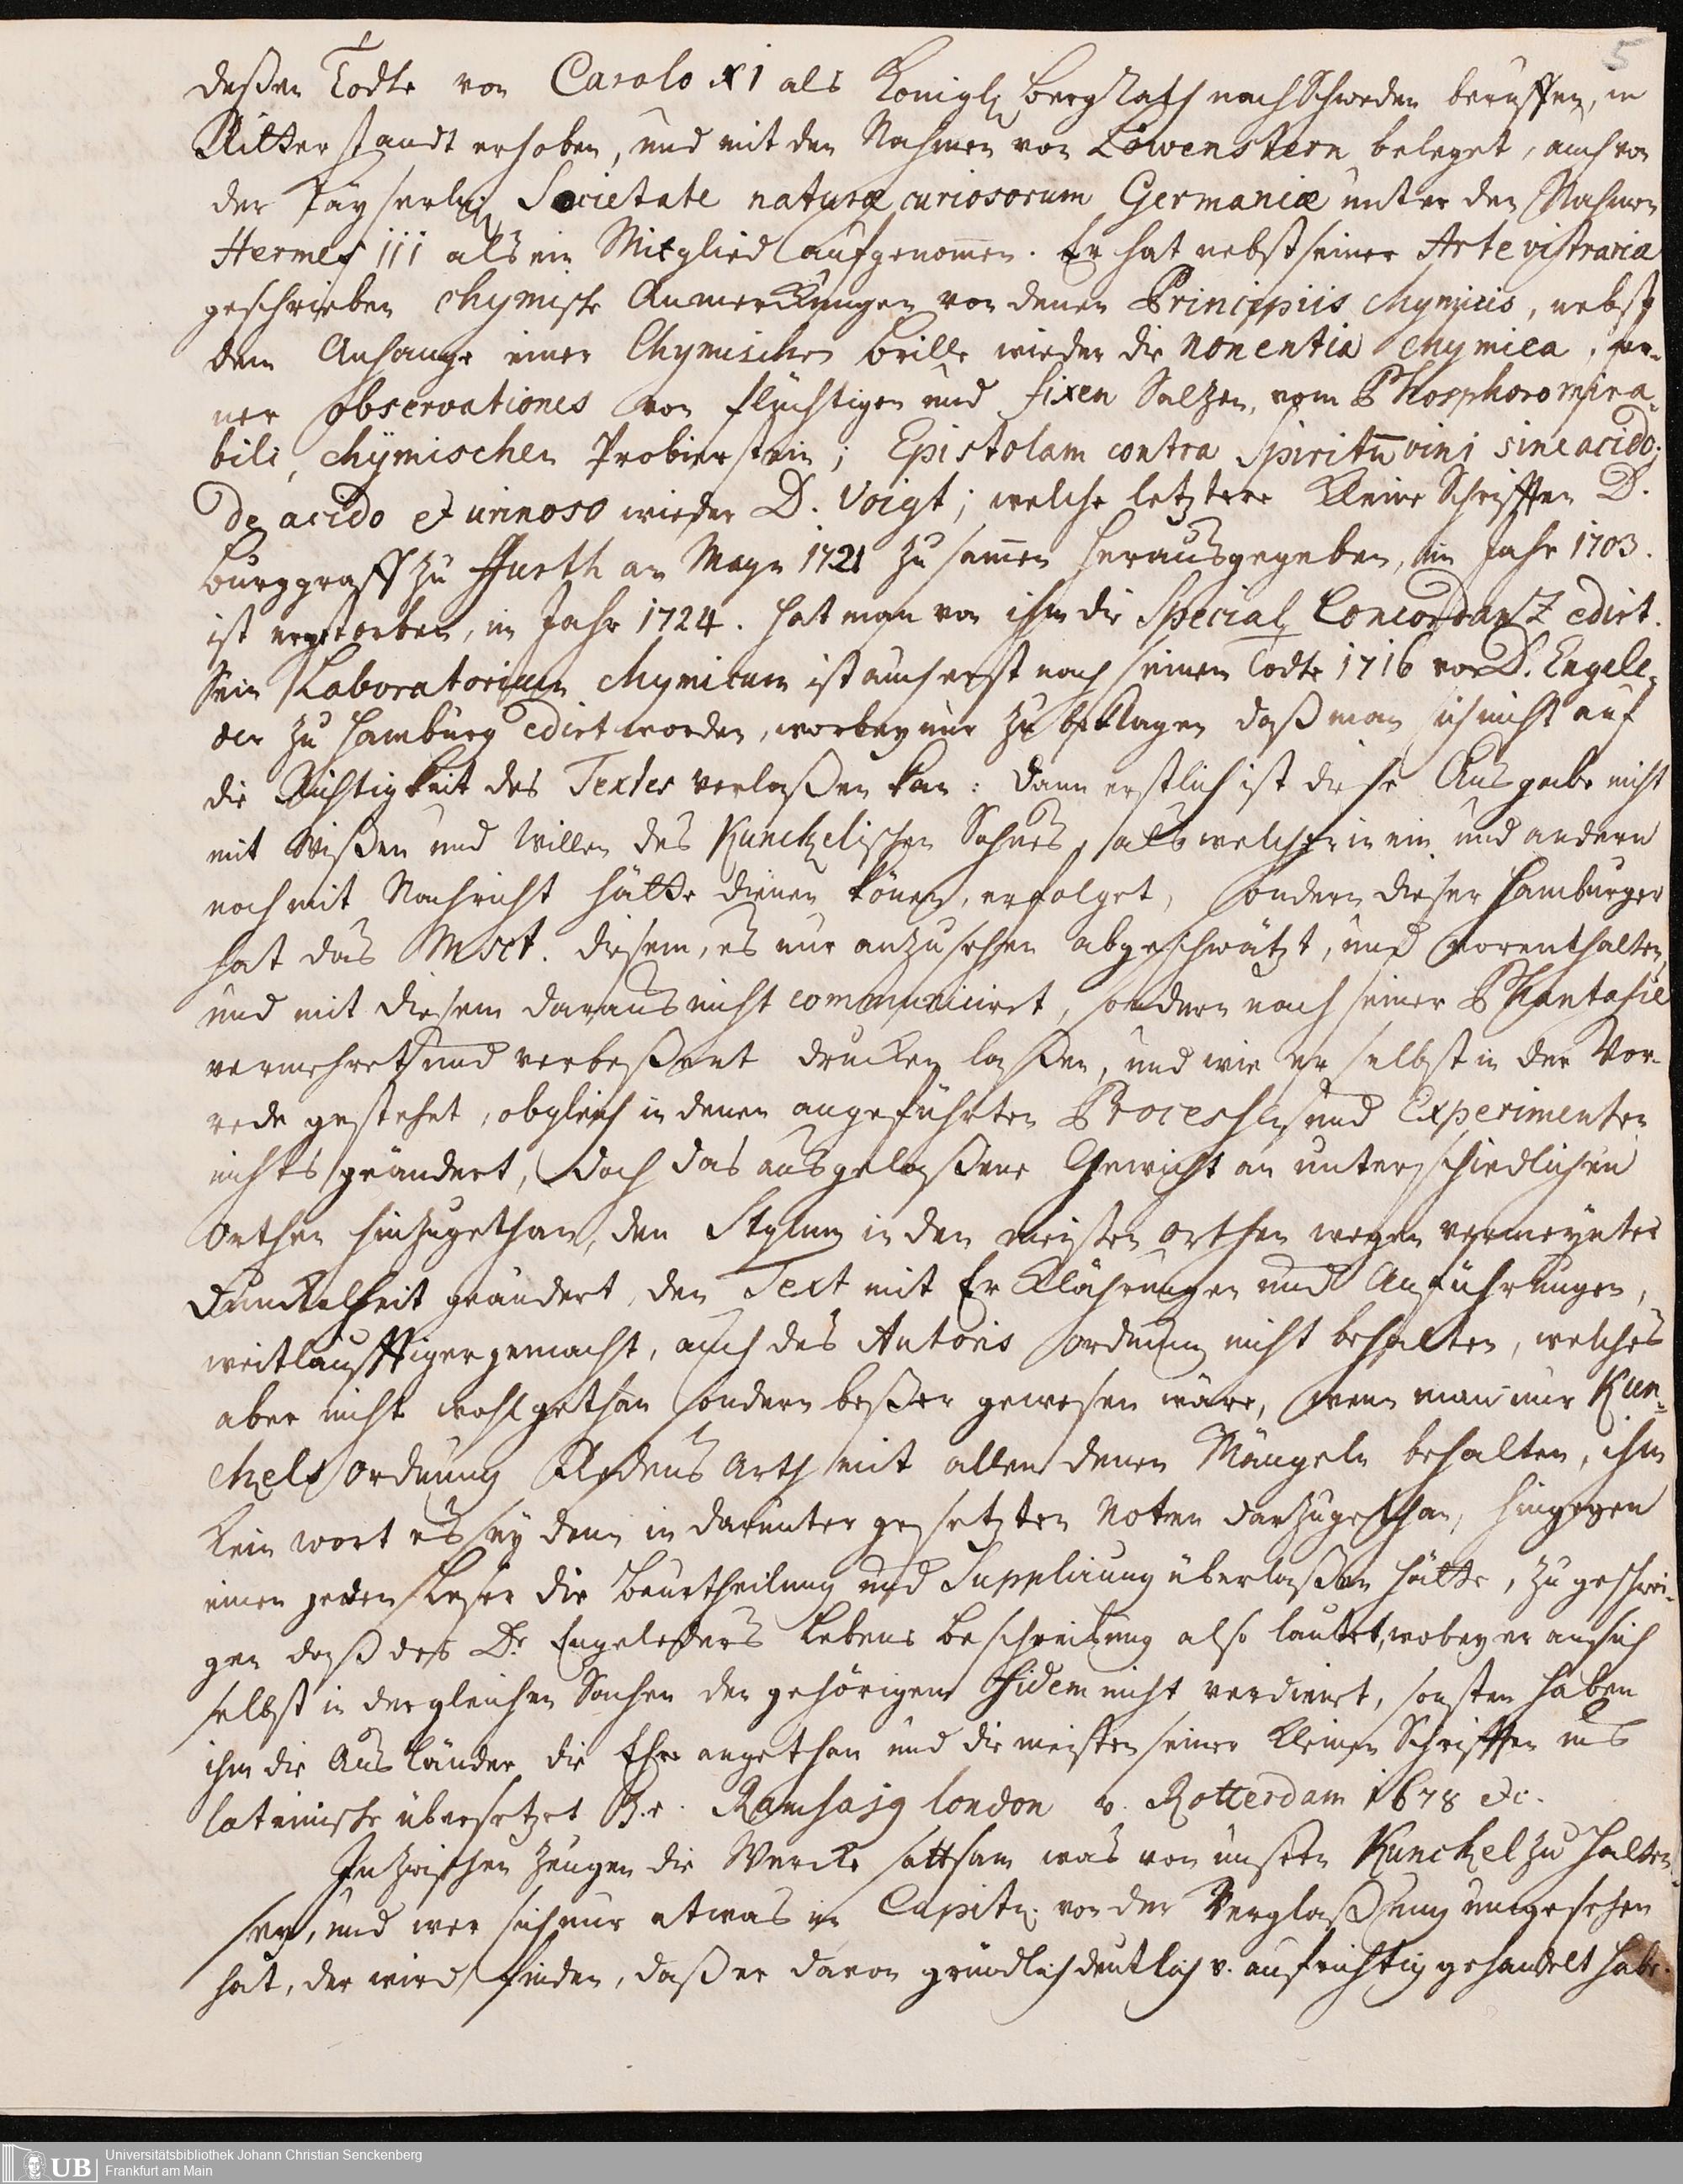 5
deßen Todte von Carolo XI als Königl. Berg Rath nach Schweden beruffen, in
Ritter standt erhoben, und mit den Nahmen von Löwenstern beleget, auch von
der Käyserlich. Societate naturæ curiosorum Germaniæ unter den Nahmen
Hermes iii als ein Mitglied aufgenom̄en. Er hat nebst seiner Arte vitraria
geschrieben chymische Anmerckungen von denen Principiis chymicis, nebst
dem Anhange einer Chymischen Brille wieder die non entia chymica, fer-
ner observationes von flüchtigen und fixen Saltzen, vom Phosphoro mira-
bili, chymischen Probierstein; Epistolam contra Spiritū vini sine acido;
de acido et urinoso wieder D. Voigt; welche letztere kleine Schrifften D.
Burggraff zu Furth am Mayn 1721 zusam̄en herausgegeben, im Jahr 1703.
ist verstorben, im Jahr 1724. hat man von ihm die Special Concordantz edirt.
Sein Laboratorium chymicum ist auch erst nach seinem Todte 1716 von D. Engele-
der zu Hamburg edirt worden, worbey nur zu beklagen daß man sich nicht auf
die Richtigkeit des Textes verlaßen kan: dann erstlich ist diese Ausgabe nicht
mit Wißen und Willen des Kunckelischen Sohnes, als welcher in ein und andern
noch mit Nachricht hätte dienen könen, erfolget, sondern dieser Hamburger
hat das Msct. diesem, es nur anzusehen abgeschwätzt, und vorenthalten,
und mit diesem daraus nicht communiciret, sondern nach seiner Phantasie
vermehret und verbeßert drucken laßen, und wie er selbst in der Vor-
rede gestehet, obgleich in denen angeführten Processen und Experimenten
nichts geändert, doch das ausgelaßene Gewicht an unterschiedlichen
Orthen hinzugethan, den Stylum in den meisten Orthen wegen vermeynter
Dunckelheit geändert, den Text mit Erklährungen und Anführungen,
weitläufftiger gemacht, auch des Autoris Ordnung nicht behalten, welches
aber nicht wohl gethan sondern beßer gewesen wäre, wenn man nur Kun-
ckels Ordnung Redens Arth mit allen denen Mängeln behalten, ihm
kein wort es sey denn in darunter gesetzten Noten darzugethan, hingegen
einen jeden Leser die Beurtheilung und Supplirung überlaßen hätte, zu geschwei-
gen daß des Dr. Engeleders Lebens beschreibung also lautet, wobey er an sich
selbst in dergleichen Sachen den gehörigen Fidem nicht verdienet, sonsten haben
ihm die Ausländer die Ehre angethan und die meisten seiner kleinen Schrifften ins
lateinische übersetzet Z.e. Ramsajg london v. Rotterdam 1678 etc.
Inzwischen zeugen die Wercke sattsam was von unsern Kunckel zu halten
sey, und wer sich nur etwas in Capitel von der Verglaßung umgesehen
hat, der wird finden, daß er davon gründlich deutlich v. aufrichtig gehandelt habe.
UB
Universitätsbibliothek Johann Christian Senckenberg
Frankfurt am Main